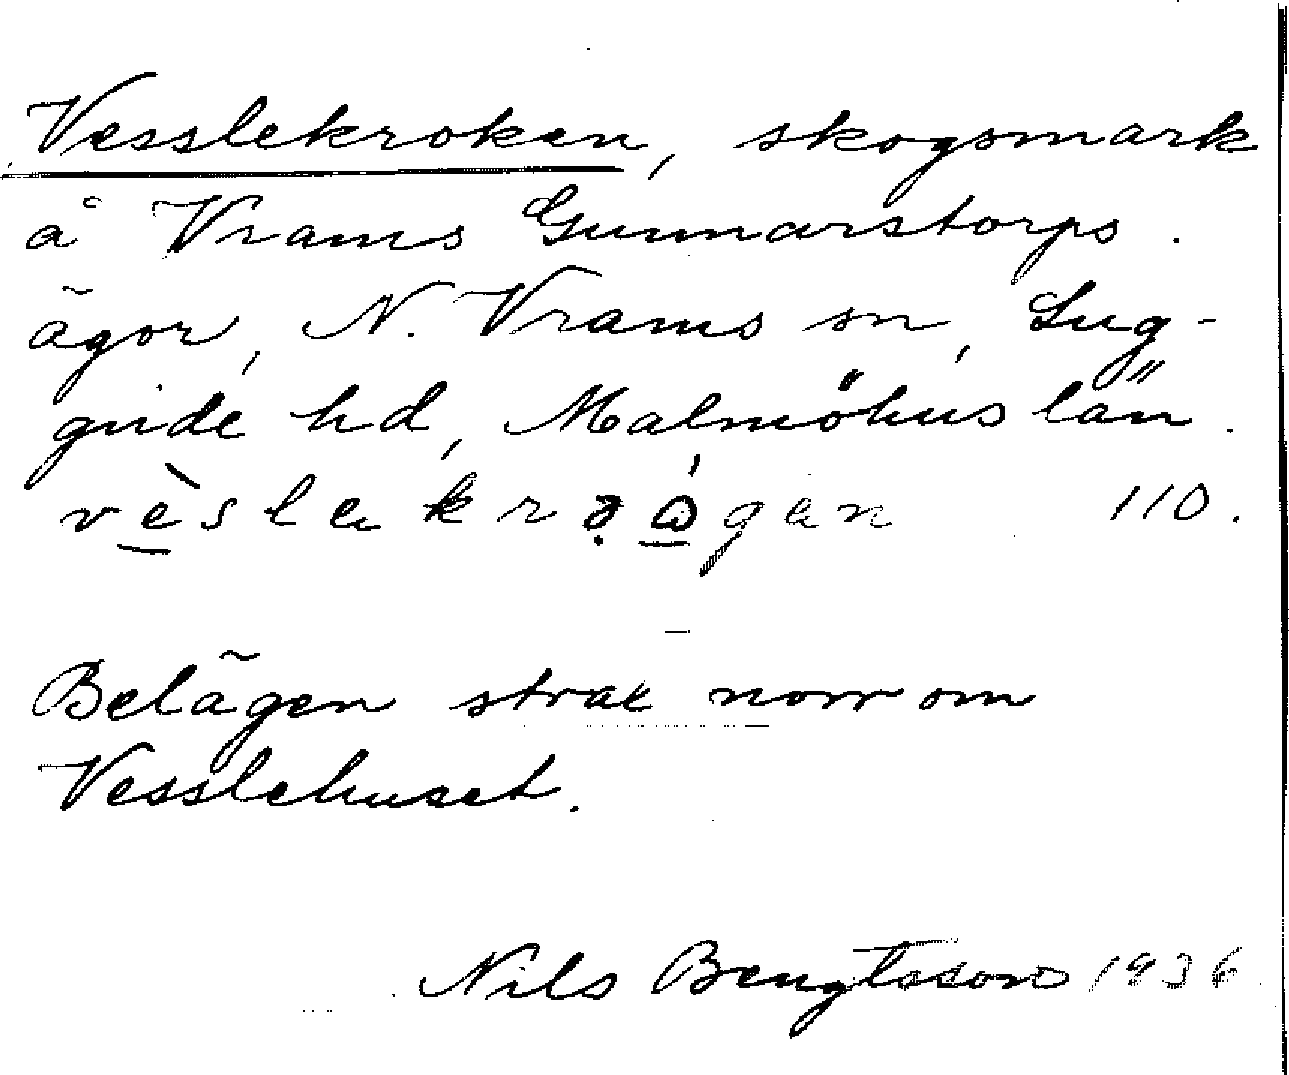 Vesslekroken, skogsmark
å Vrams Gunnarstorps
ägor, N. Vrams sn, Lug-
gude hd, Malmöhus län.
110.
Belägen strax norr om
Vesslehuset.
Nils Bengtsson 1936